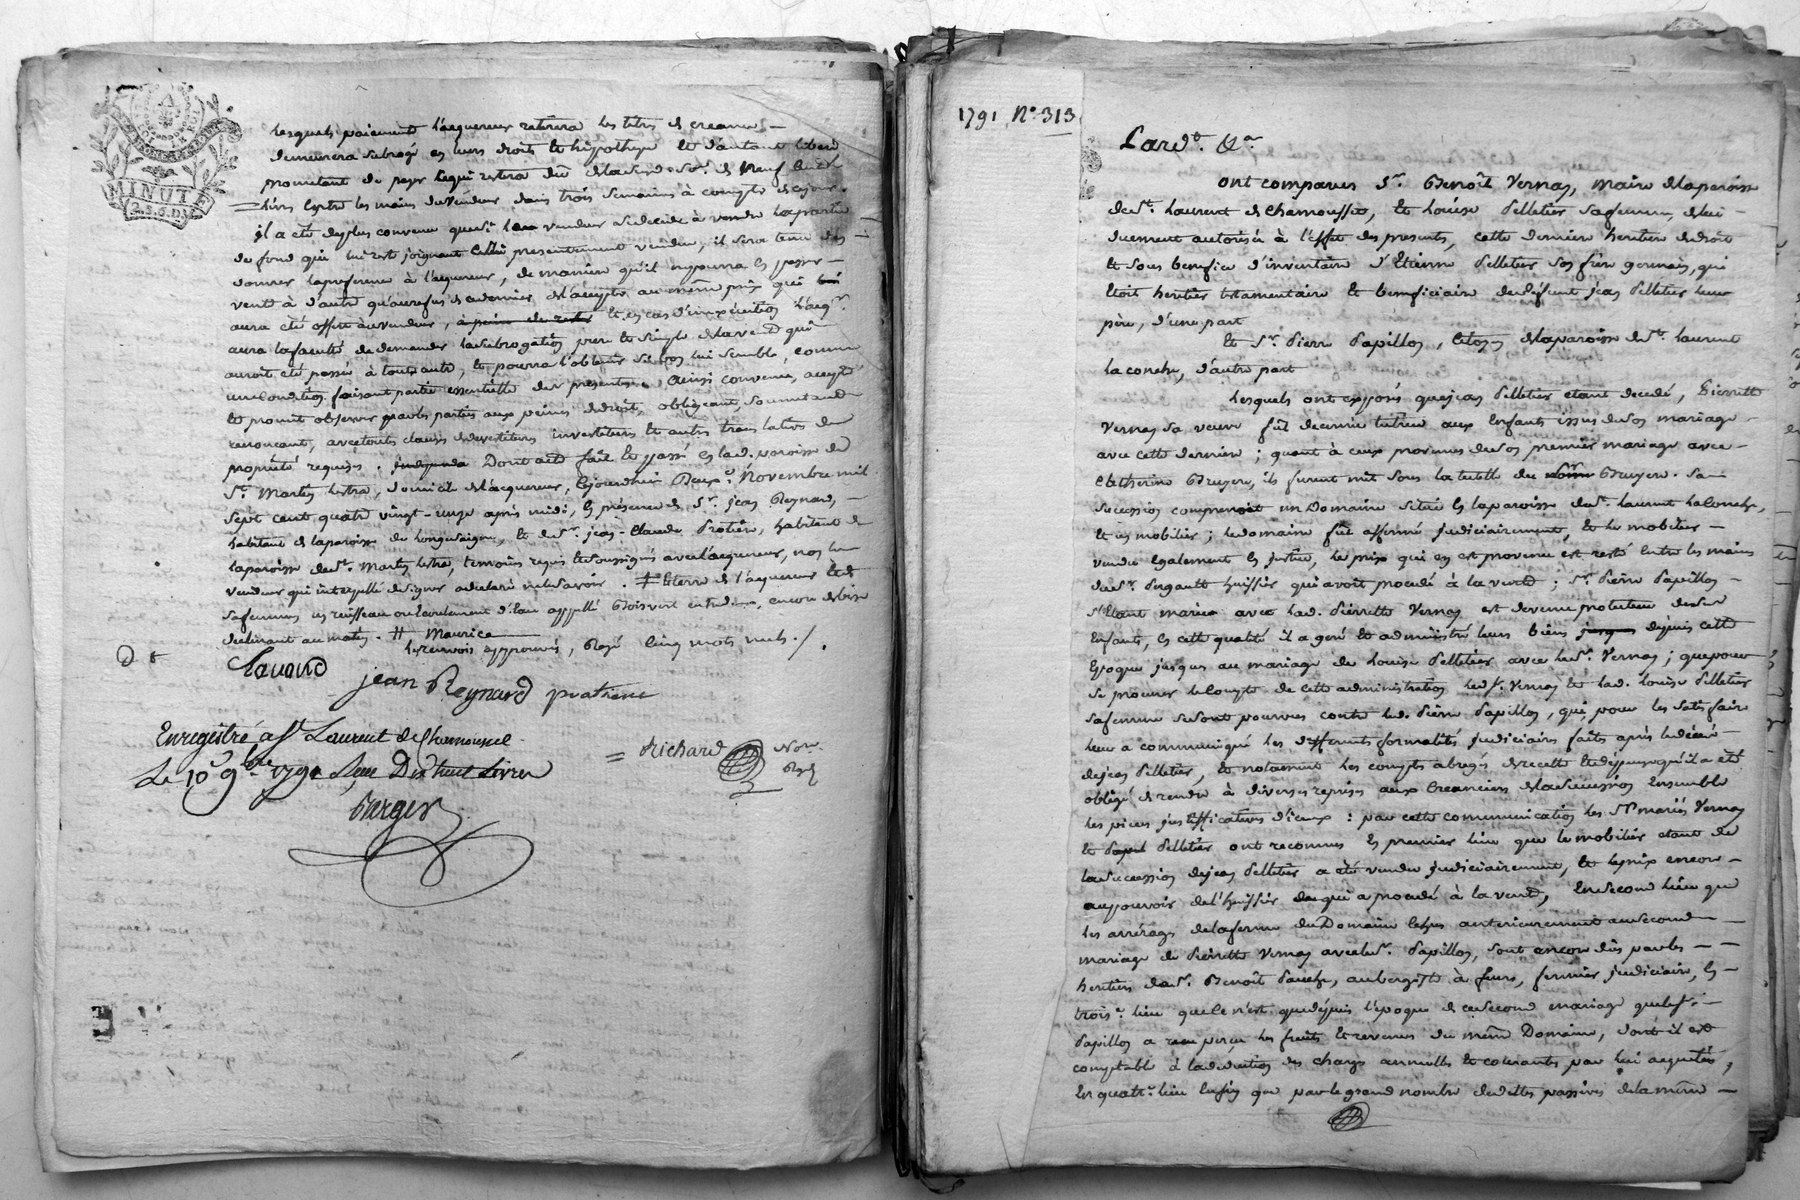 MINUTE
2.S.6.D.
lesquels paiement l'acquereur retirera les titres de creances
demeurera subrogé en leurs droits et hypotheque et d'autant libéré
promettant de payer ce qui restera dû de la de neuf cent
livres entre les mains du vendeur dans trois semaines à compter de ce jour.
il a été de plus convenu que si le vendeur se decide à vendre la partie
de fond qui lui reste joignant celle presentement vendue, il sera tenu d'en
donner la preference à l'acquereur, de maniere qu'il ne pourra en passer
vente à d'autre qu'au refus de ce dernier de l'accepter au même prix qui lui
aura été offert au vendeur, à peine de et en cas d'inexécution l'acqr
aura la faculté de demander la subrogation pure et simple de la vente qui
auroit été passée à tout autre, et pourra l'obtenir si bon lui semble, comme
une condition faisant partie essentielle des presentes. Ainsi convenu, accepté
et promit observer par les parties aux peines de droit, obligeant, soumettant
renonçant, avec toutes clauses devestitures investitures et autres translatives de
propriété requises. Dont acte fait et passé en lad. paroisse de
St. Martin lestra, domicile de l'acquereur, cejourd'hui deux Novembre mil
sept cent quatre vingt-onze après midi, en présence de Sr. jean Reynard,
habitant de la paroisse de Longessaigne, et de Sr. jean-Claude Protiere, habitant de
la paroisse de St. Martin lestra, temoins requis et soussignés avec l'acquereur, non le
vendeur qui interpellé de signer a declaré ne le savoir. # et terre de l'acquereur et de
sa femme un ruisseau ou ecoulement d'eau appellé Boisvert entredeux, encore de bise
declinant au matin. # Maurice
les renvois approuvés, rayé cinq mots nuls.
jean Reynard protiere
Enregistré a St Laurent de Chamousset
Le 10 9bre 1791 Reçu Dix huit Livres
= Richard Nore.
Royl
Barges
1791 N°. 313
Pard. &a.
ont comparus Sr. Benoît Vernay, maire de la paroisse
de St. Laurent de Chamousset, et Louise Pelletier sa femme, de lui
duement autorisée à l'effet des presentes, cette derniere heritiere de droit
et sous benefice d'inventaire d'Etienne Pelletier son frère germain, qui
étoit heritier testamentaire et beneficiaire de defunt jean Pelletier leur
père, d'une part
et Sr. Pierre Papillon, citoyen de la paroisse de St. Laurent
la conche, d'autre part
Lesquels ont exposés que jean Pelletier etant decedé, Pierrette
Vernay sa veuve fût decernée tutrice aux Enfants issus de son mariage
avec cette derniere; quant à ceux provenus de son premier mariage avec
Catherine Bruyere, ils furent mit sous la tutelle du Bruyere. Sa
succession comprenoit un Domaine situé en la paroisse de St. Laurent la Conche,
et un mobilier; le domaine fut affermé judiciairement, et le mobilier
vendu également en justice, le prix qui en est provenu est resté entre les mains
de Sr. huissier qui avoit procédé à la vente; Sr. Pierre Papillon
s'étant marié avec lad. Pierrette Vernay est devenu protuteur de ses
Enfants, en cette qualité il a geré et administré leurs biens jusques depuis cette
Epoque jusques au mariage de Louise Pelletier avec led. Sr. Vernay; que pour
se procurer le compte de cette administration led. Sr. Vernay et lad. Louise Pelletier
sa femme se sont pourvus contre led. Pierre Papillon, qui pour les satisfaire
leur a communiqué les differents formalités judiciaires faites après le décès
de jean Pelletier, et notament les comptes abregés de recette et depense qu'il a été
obligé de rendre à diverses reprises aux Creanciers de la succession Ensemble
les pieces justifficatives d'iceux: par cette communication les Srs mariés Vernay
et Papil Pelletier ont reconnus En premier lieu que le mobilier etant de
la succession de jean Pelletier a été vendu judiciairement, et le prix encore
au pouvoir de l'huissier de qui a procedé à la vente, En second lieu que
les arrérages de la ferme du Domaine échus anterieurement au second
mariage de Pierrette Vernay avec led. Sr. Papillon, sont encore dûs par les
heritiers de Sr. Benoît aubergiste à feurs, fermier judiciaire, En
trois.e lieu que ce n'est que depuis l'époque de ce second mariage que led. Sr.
Papillon a reçu perçu les fruits et revenus du même Domaine, dont il est
comptable à la deduction des charges annuelles et courantes par lui acquittées,
En quatr.e lieu Enfin que par le grand nombre de dettes passives de la même